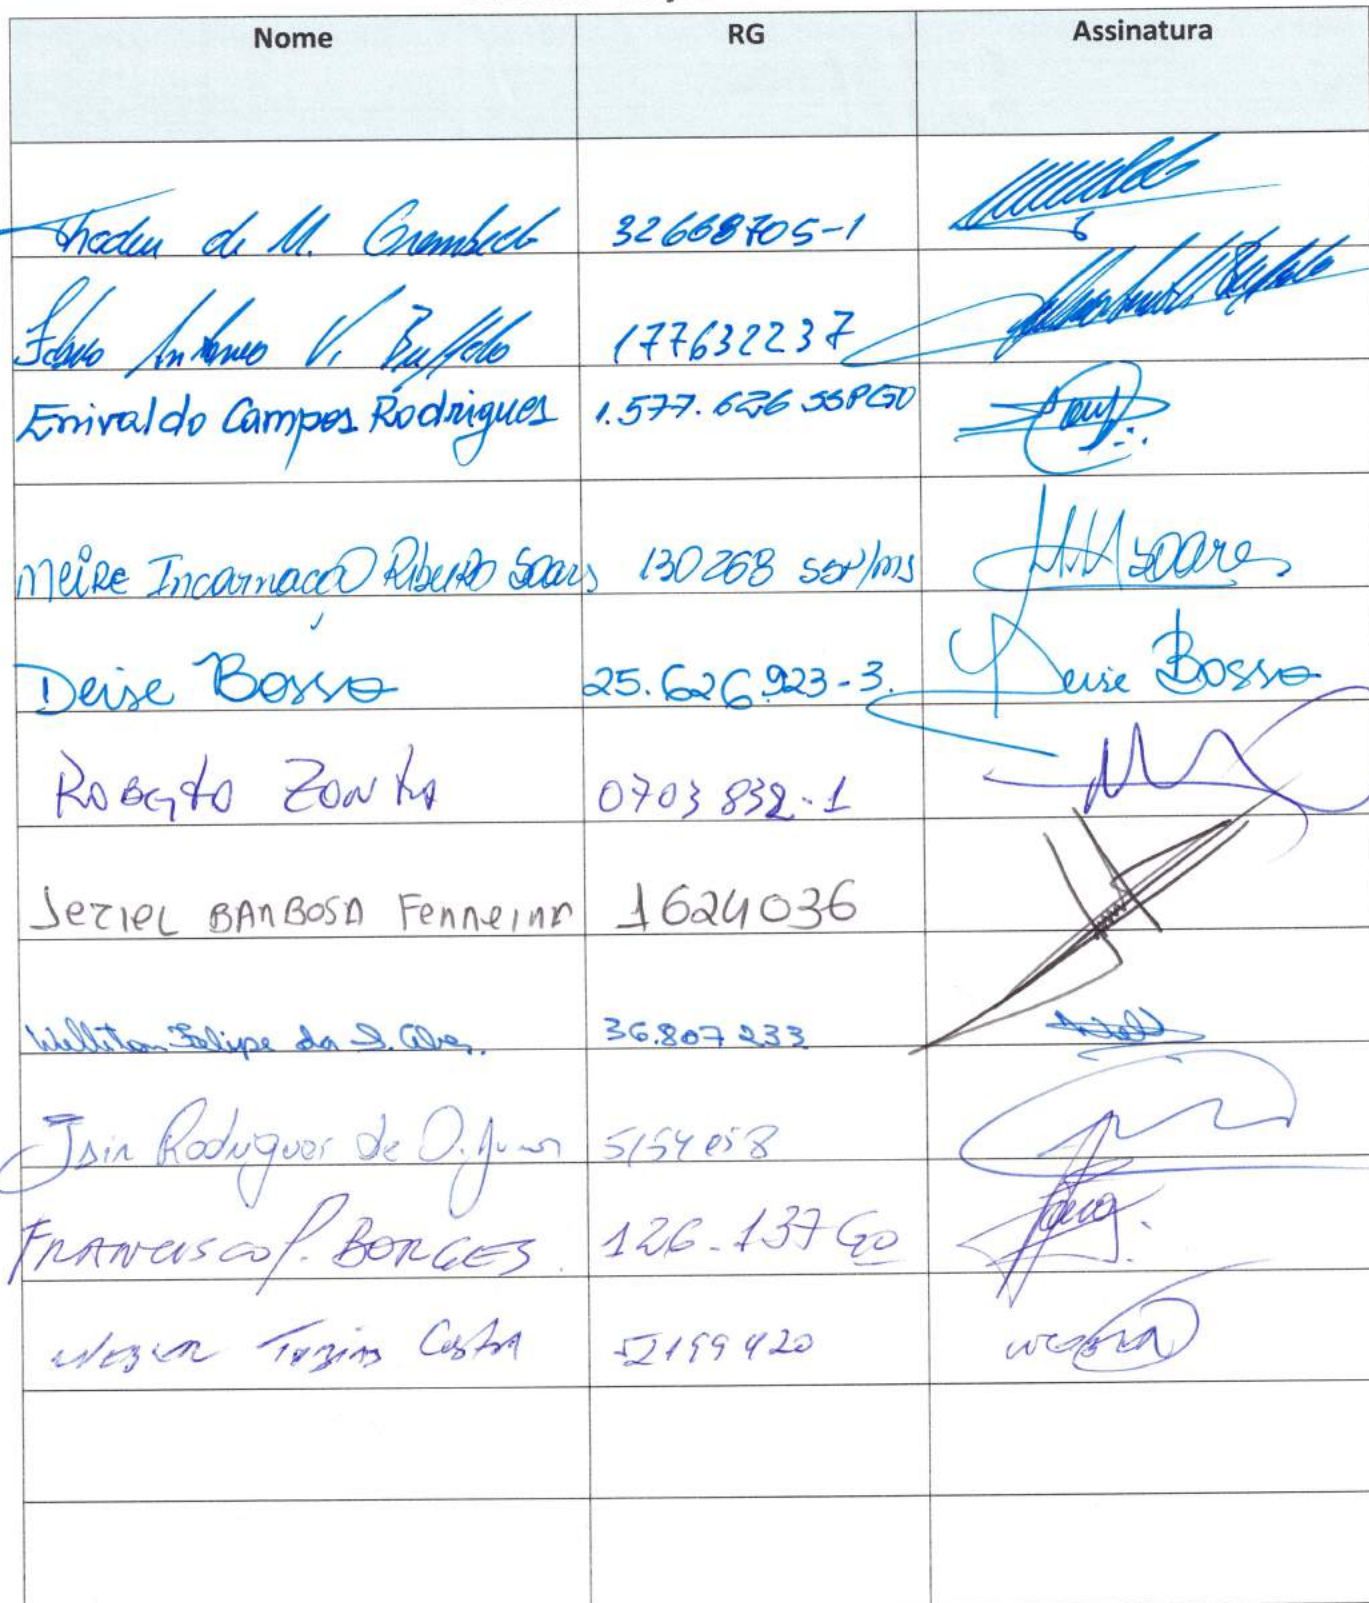 Nome RG Assinatura
Thadeu de M. Grembeck 32668705-1
Fábio Antonio V. Buffolo 177632237
Enivaldo Campos Rodrigues 1.577.626 SSPGO
Meire Incarnação Ribeiro Soares 130268 SSP/MS MMSoares
Deise Bosso 25.626.923-3. Deise Bosso
Roberto Zonta 0703832-1
Jeziel BARBOSA Ferreira 1624036
Welliton Felipe da S. Alves. 36.807233
Jair Rodrigues de O. Junior 5154058
FRANCISCO P. BORGES. 126.137 GO
Tozim Costa 52199420